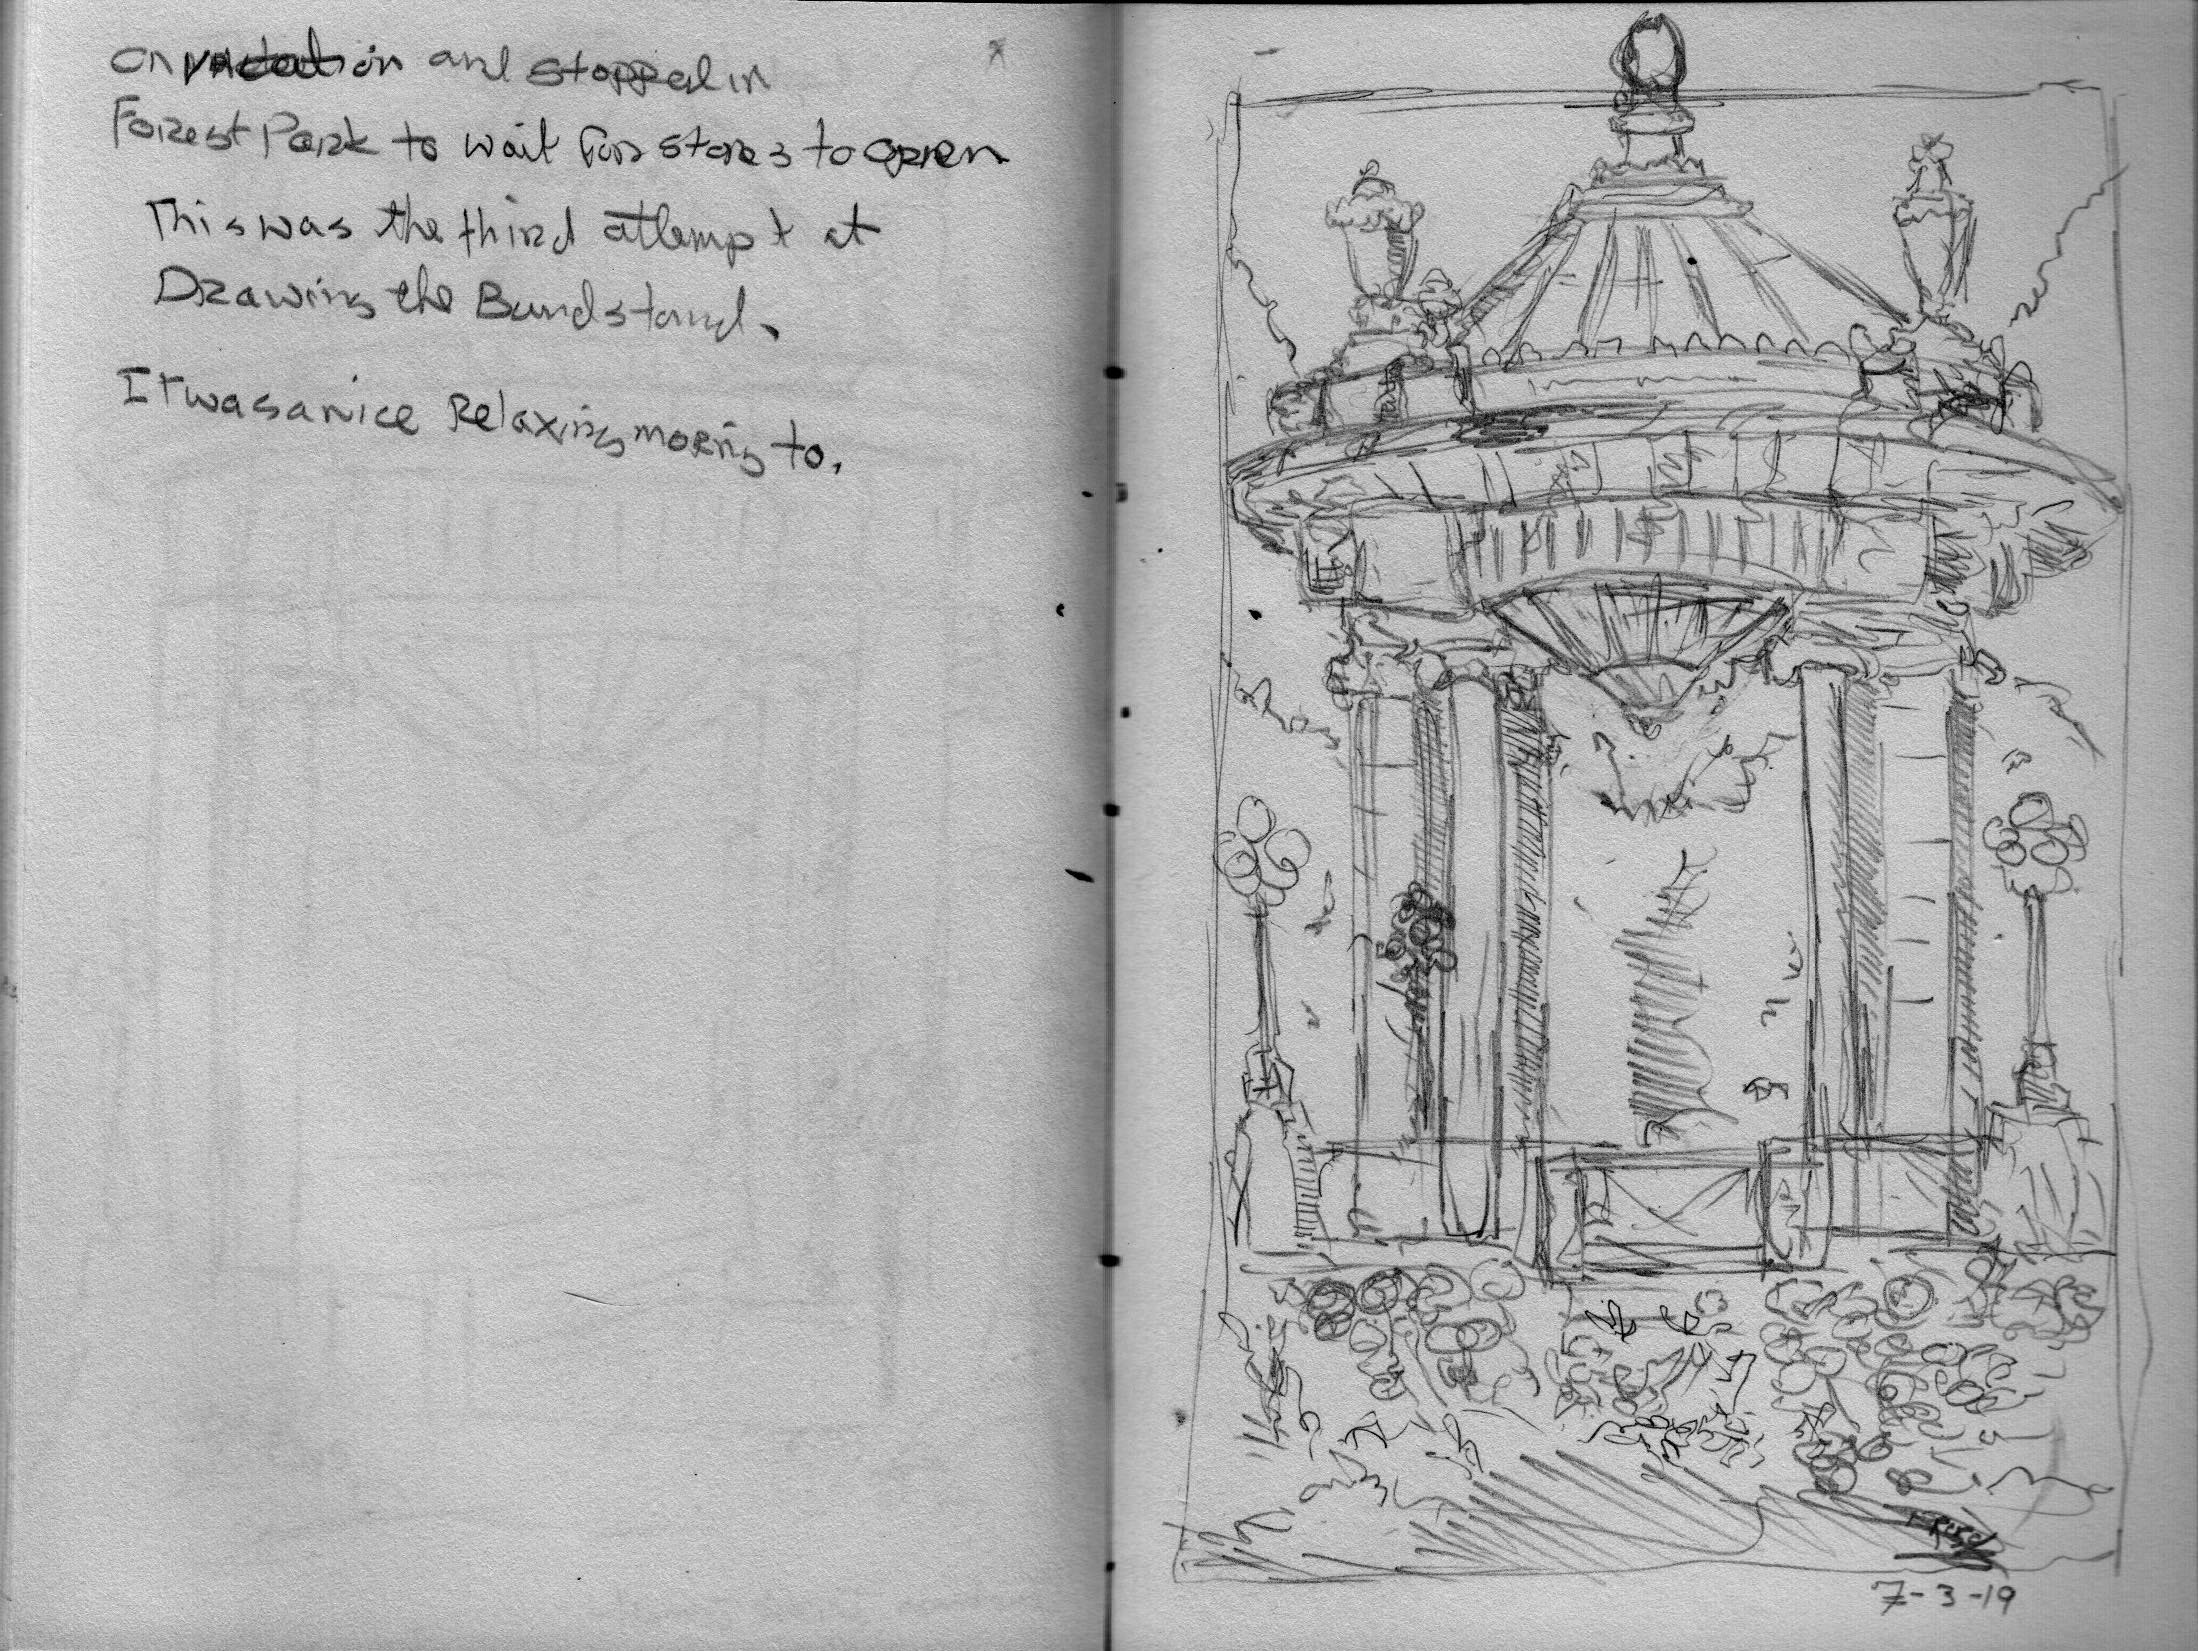 On vacation and stopped in
Forest Park to wait for stores to open
This was the third attempt at
Drawing the Bandstand.
It was a nice Relaxing morning to.
7-3-19